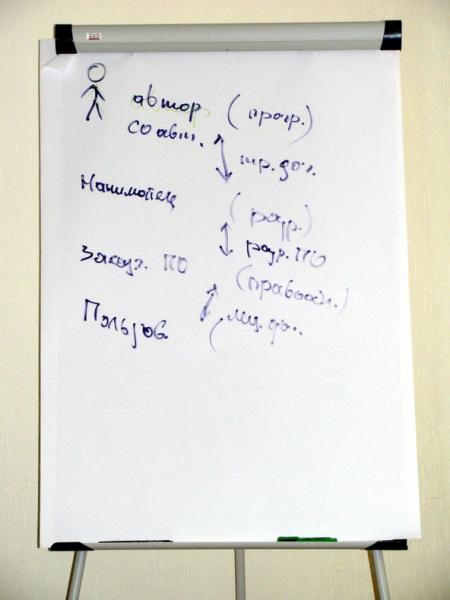 автор (прогр.)
соавт.
тр. дог.
Наниматель
(разр.)
разр. ПО
Заказч. ПО
(правообл.)
Пользов.
лиц. дог.